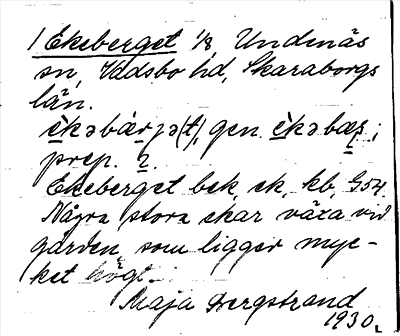 1 Ekeberget 1/8, Undenäs
sn, Vadsbo hd, Skaraborgs
län.
è̱kəbær̥jə(t), gen. è̱kəbæʂ;
prep. 2.
Ekeberget bek, ek, kb, G 54.
Några stora ekar växa vid
gården, som ligger myc-
ket högt.
Maja Bergstrand
1930.